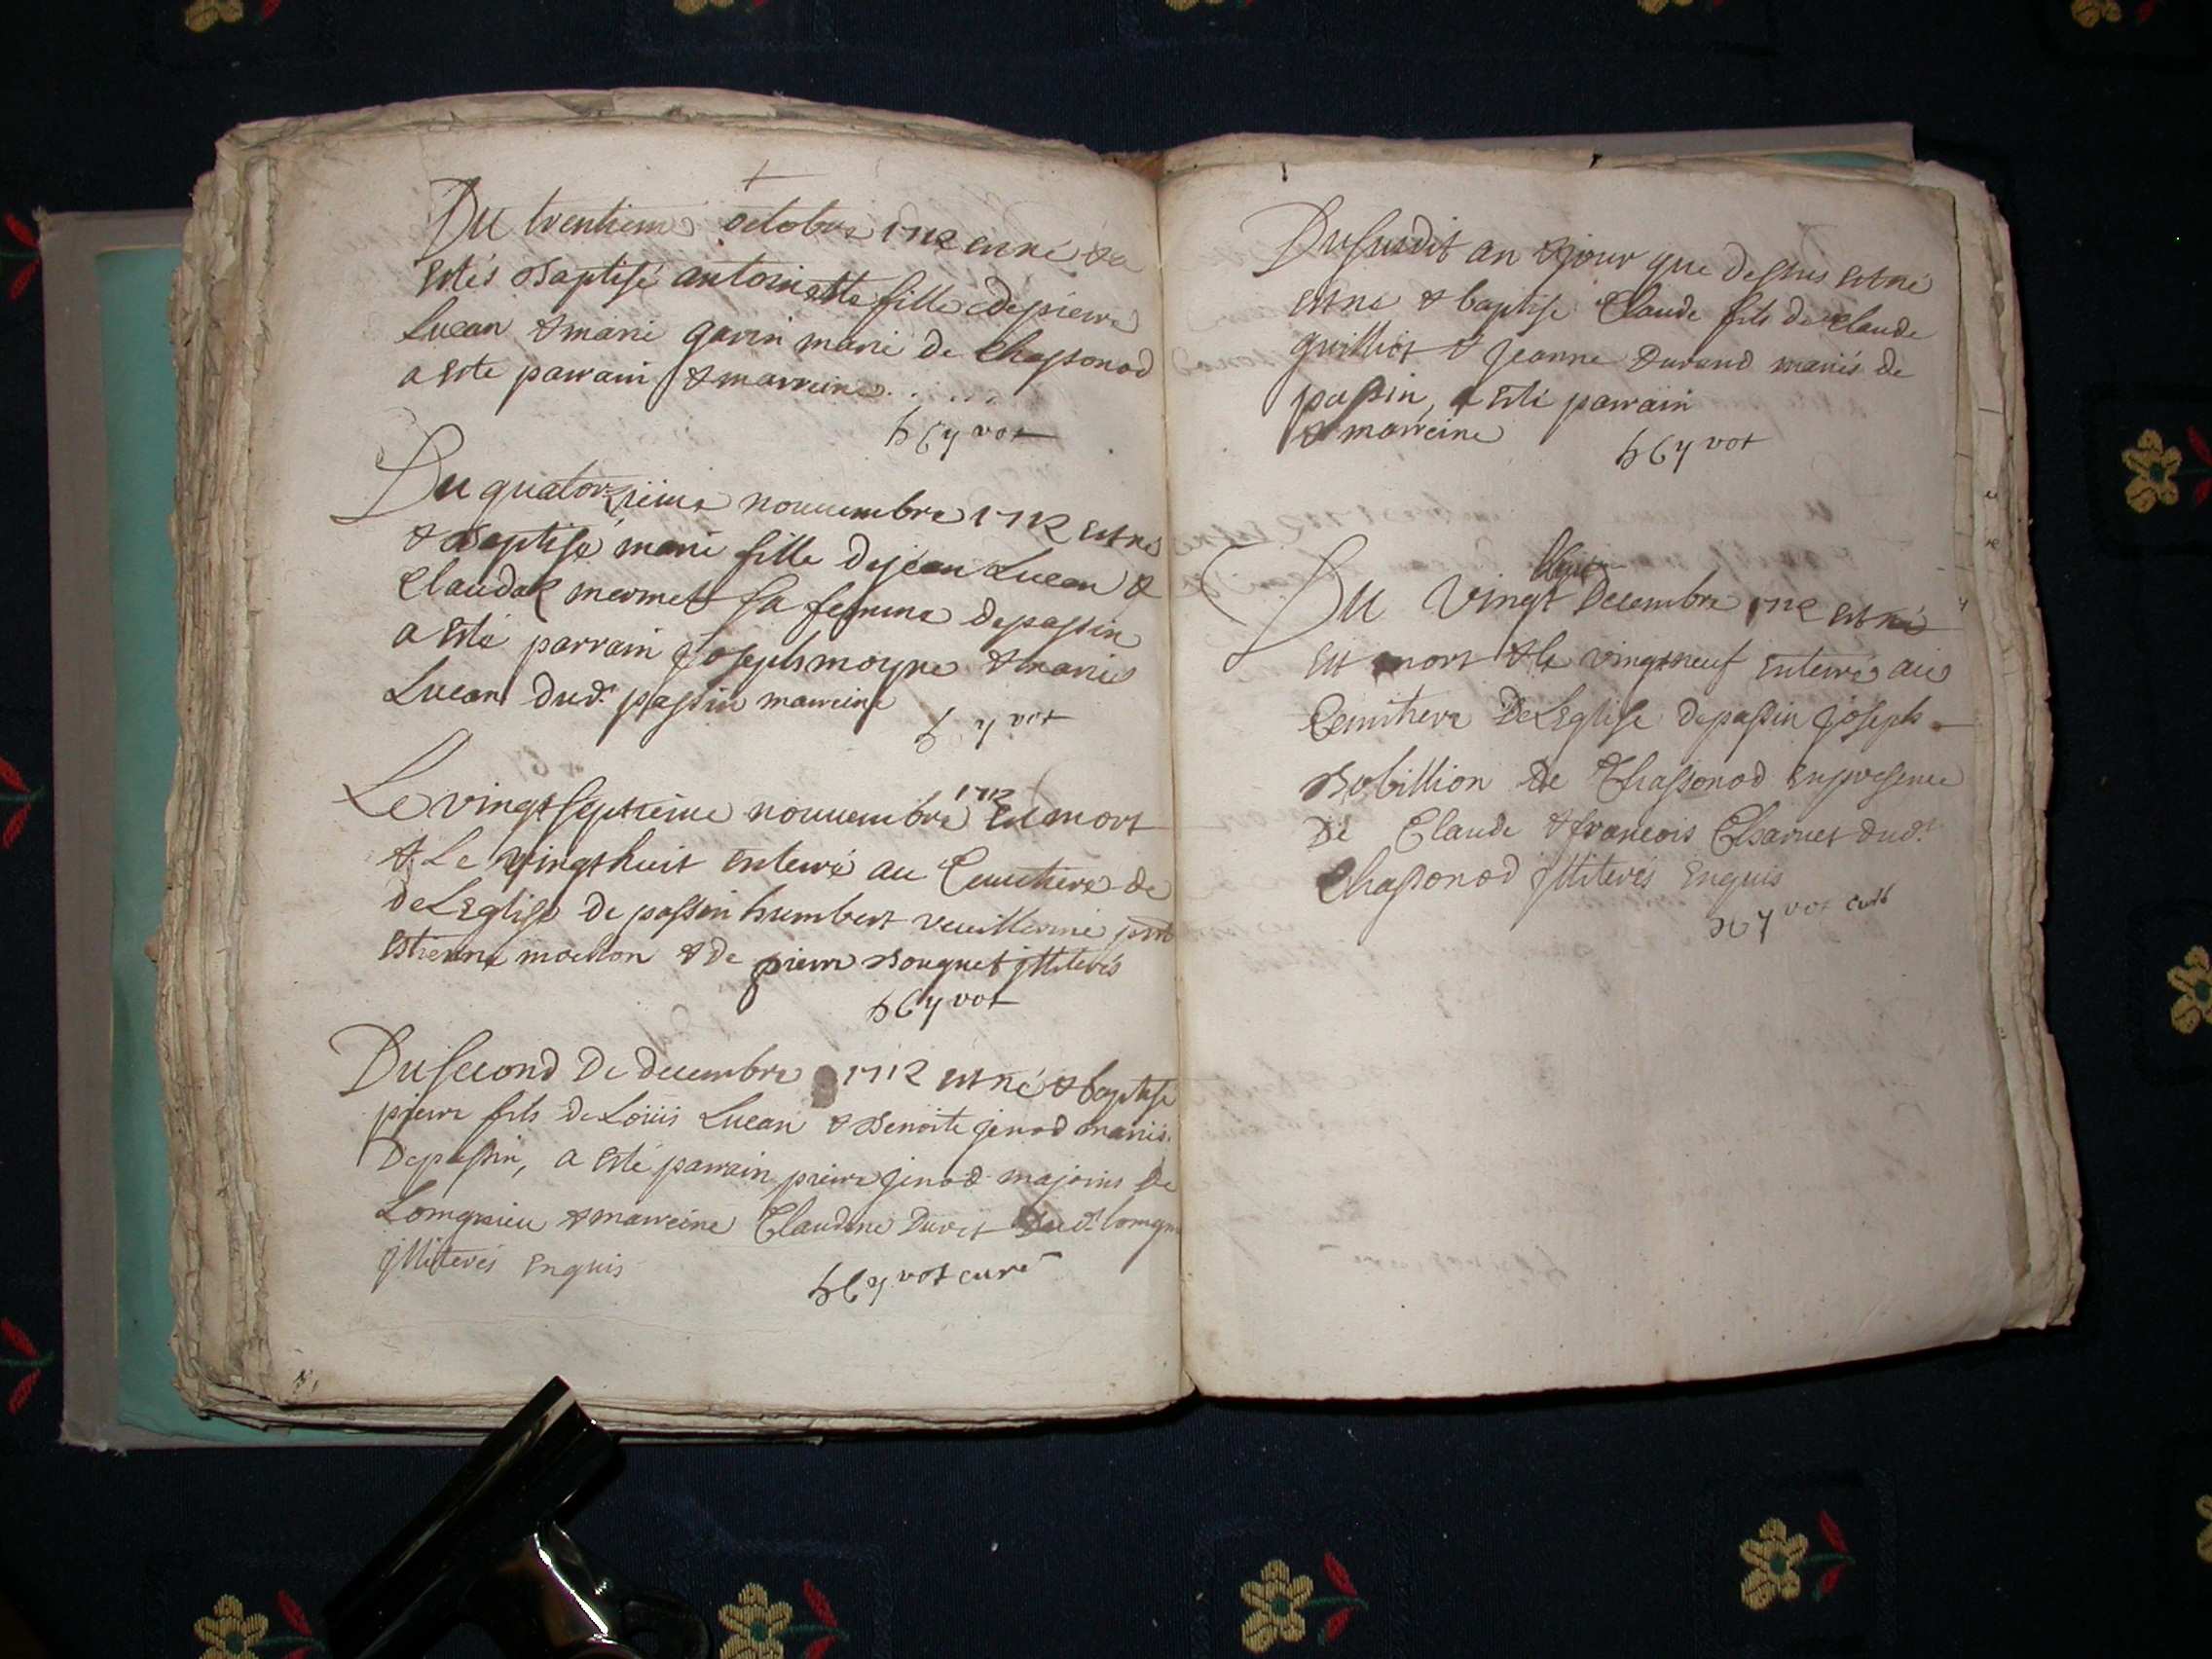 Du trentieme octobre 1712 est né & a
estés Baptisé antoinette fille de pierre
Lucan & marie gavin marié de Chassonod
a este parrain & marreine . . . . .
Guyot
Du quatorzieme nouuembre 1712 est né
& Baptisé marie fille de jean Lucan &
Clauda mermet sa femme de passin
a esté parrain Joseph moyne & marie
Lucan dud.t passin marreine
yvot
Le vingt septieme nouuembre 1712 Est mort
& Le vingt huit enterré au Cemitiere de
de LEglise de passin humbert veuillerme pnt
Estienne mochon & de pierre Bouquet jlliterés
Guyot
Du second De decembre 1712 est né & baptisé
pierre fils de Loüis Lucan & Benoite genod mariés
De passin, a Esté parrain pierre genod majeins De
Lomgnieu & marreine Claudine Duret Dud.t Lomgn
jlliterés Enquis
Guyot curé
Du susdit an & jour que dessus est né
est né & baptisé Claude fils de Claude
guilliot & Jeanne Durand mariés de
passin, a Esté parrain
& marreine
Guyot
huit
Du Vingt Decembre 1712 est né
est mort & le vingt neuf enterré au
Cemitiere De LEglise de passin Joseph
Bobillion de Chassonod en presence
De Claude & francois Charvet dud.t
Chassonod jlliterés Enquis
Guyot curé